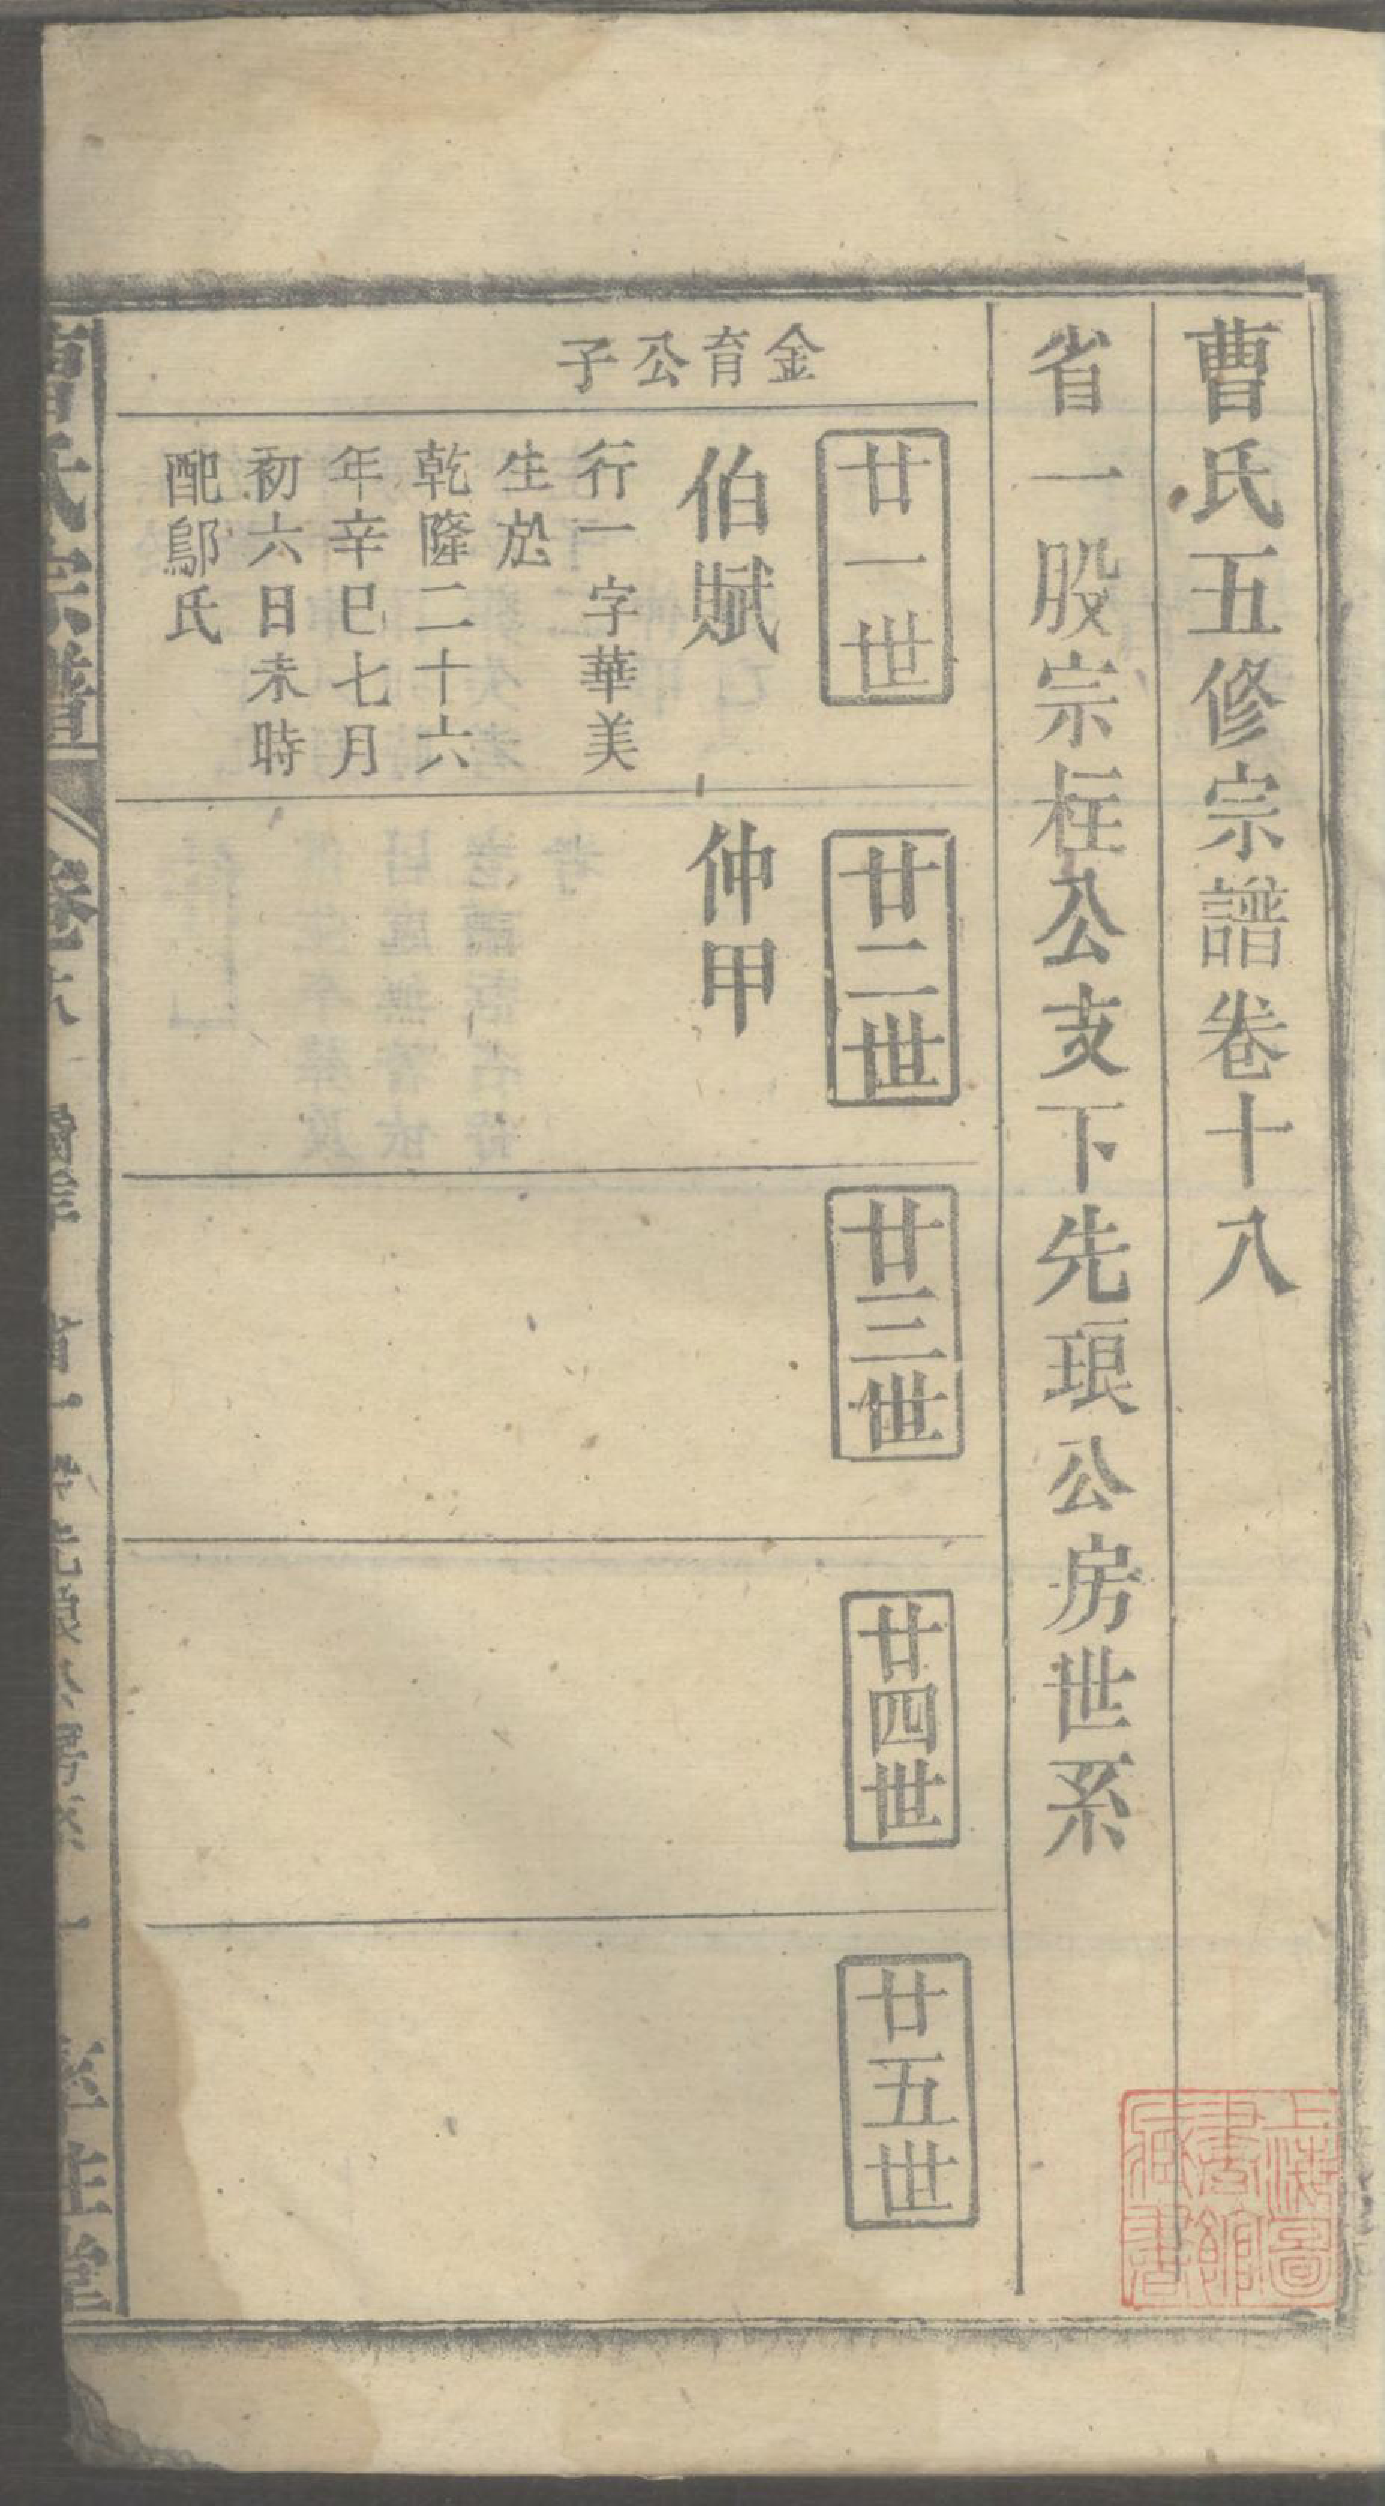 曹氏五修宗譜卷十八
省一股宗枉公支下先琅公房世系
金育公子
廿一世
伯賦
行一字華美
生於
乾隆二十六
年辛巳七月
初六日未時
配鄔氏
廿二世
仲甲
廿三世
廿四世
廿五世
上海圖
書館
藏書